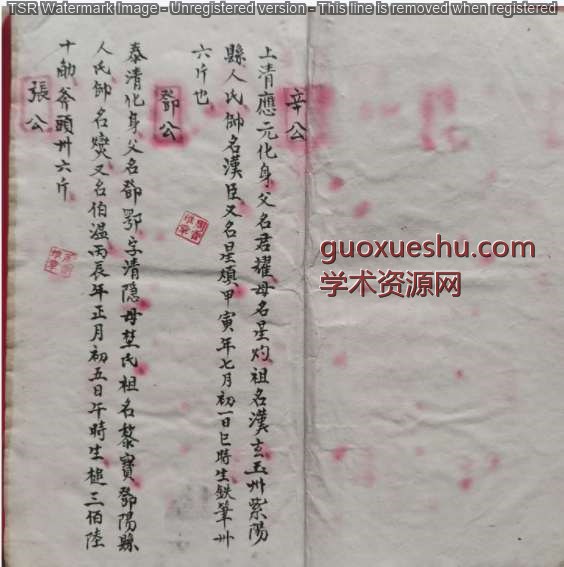 TSR Watermark Image - Unregistered version - This line is removed when registered
辛公
上清應元化身父名君耀母名星灼祖名漢玄玉州紫陽
縣人氏帥名漢臣又名星煩甲寅年七月初一日巳時生鉄筆卅
六斤也
鄧公
泰清化身父名鄧鄂字清隱母埜氏祖名黎寶鄧陽縣
人氏帥名燮又名伯溫丙辰年正月初五日午時生槌三佰陸
十觔斧頭卅六斤
張公
guoxueshu.com
学术资源网